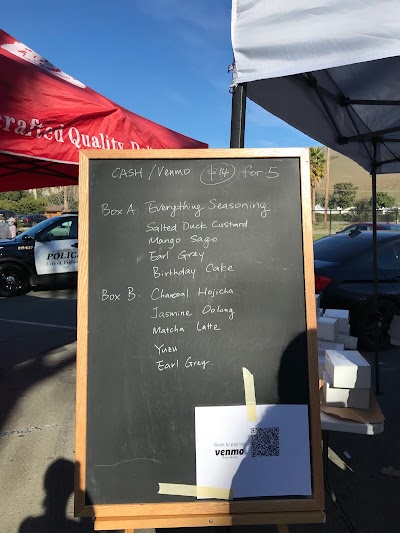 Crafted Quality
POLICE
CASH / Venmo $14 for 5
Box A. Everything Seasoning
Salted Duck Custard
Mango Sago
Earl Grey
Birthday Cake
Box B. Charcoal Hojicha
Jasmine Oolong
Matcha Latte
Yuzu
Earl Grey
Scan to pay
venmo